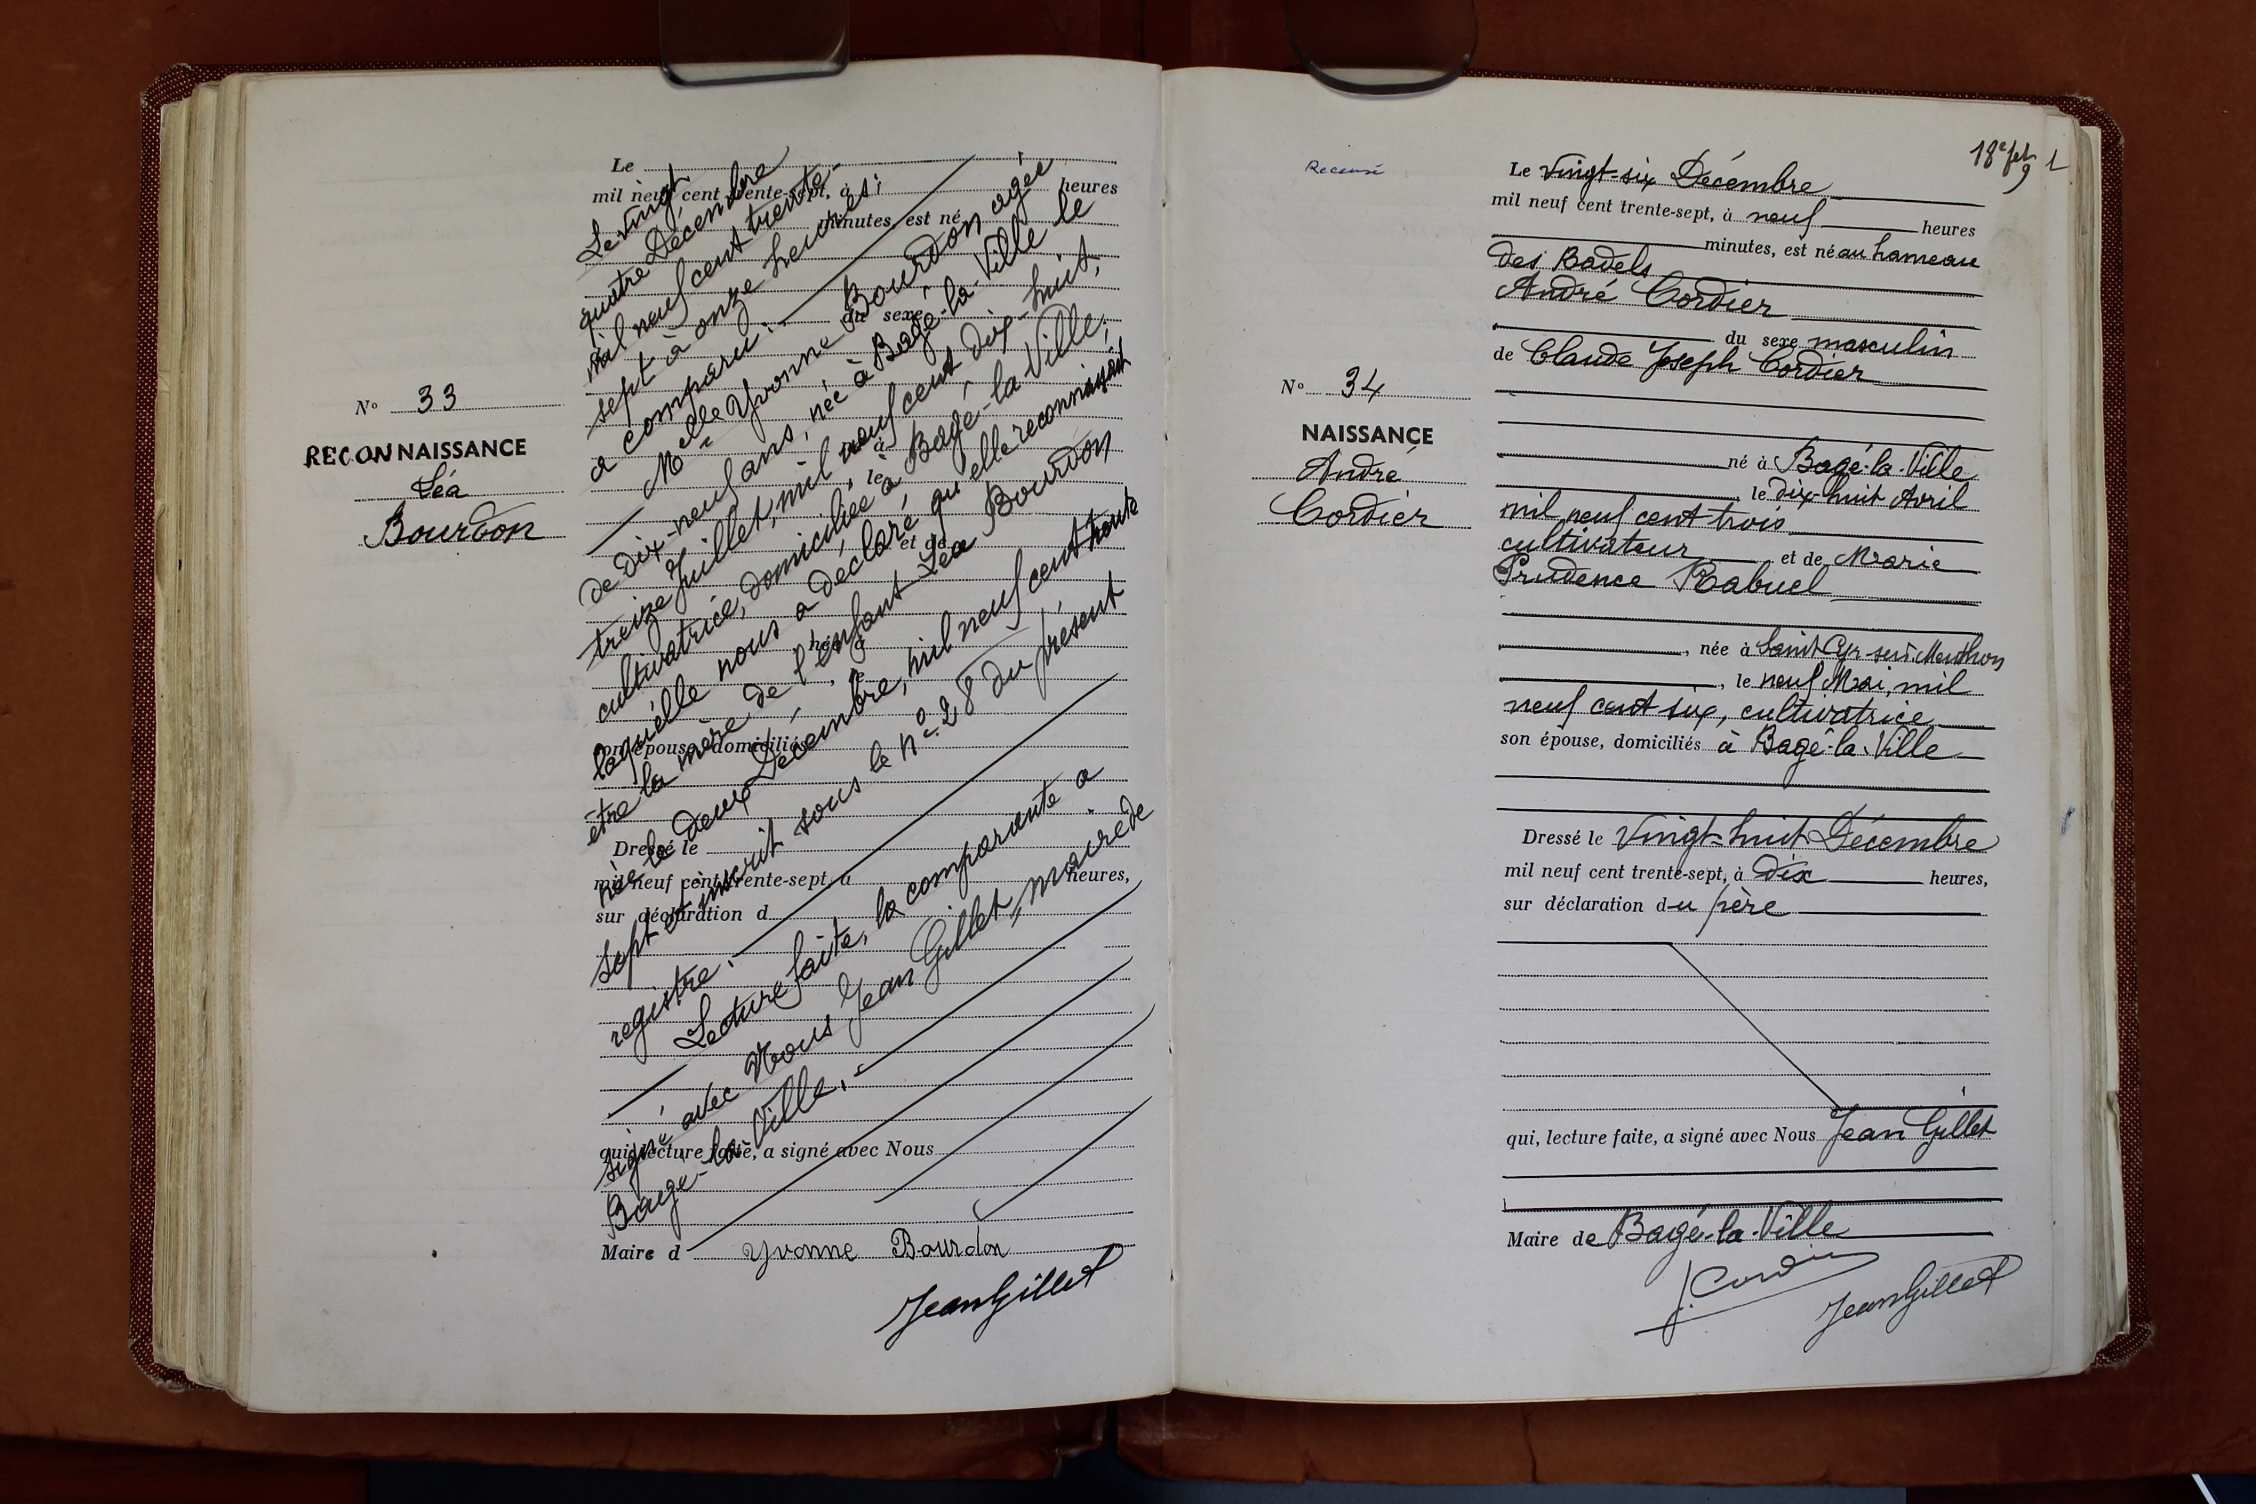 N° 33
RECONNAISSANCE
Léa
Bourdon
Le
mil neuf cent trente-sept, à heures
minutes, est né
du sexe
à
, le
et de
née à
, le
son épouse, domiciliés
Dressé le
mil neuf cent trente-sept, à heures,
sur déclaration d
qui, lecture faite, a signé avec Nous
Maire d
Le vingt
quatre Décembre
mil neuf cent trente-
sept à onze heures;
a comparu:
Melle Yvonne Bourdon agée
de dix-neuf ans, née à Bagé-la-Ville le
treize Juillet, mil neuf cent dix-huit,
cultivatrice, domiciliée à Bagé-la-Ville;
laquelle nous a déclaré qu'elle reconnaissait
être la mère de l'enfant Léa Bourdon
née le deux Décembre, mil neuf cent trente
sept et inscrit sous le n° 28 du présent
registre.
Lecture faite, la comparante a
signé avec Nous Jean Gillet, maire de
Bagé-la-Ville.
Yvonne Bourdon
Jean Gillet
Recensé
18e fet
N° 34
NAISSANCE
André
Cordier
Le Vingt-six Décembre
mil neuf cent trente-sept, à neuf heures
minutes, est né au hameau
des Badels
André Cordier
du sexe masculin
de Claude Joseph Cordier
né à Bagé-la-Ville
, le dix-huit Avril
mil neuf cent trois
cultivateur et de Marie
Prudence Rabuel
, née à Saint Cyr sur Menthon
, le neuf Mai, mil
neuf cent six, cultivatrice
son épouse, domiciliés à Bagé-la-Ville
Dressé le Vingt-huit Décembre
mil neuf cent trente-sept, à dix heures,
sur déclaration du père
qui, lecture faite, a signé avec Nous Jean Gillet
Maire de Bagé-la-Ville
J. Cordier
Jean Gillet